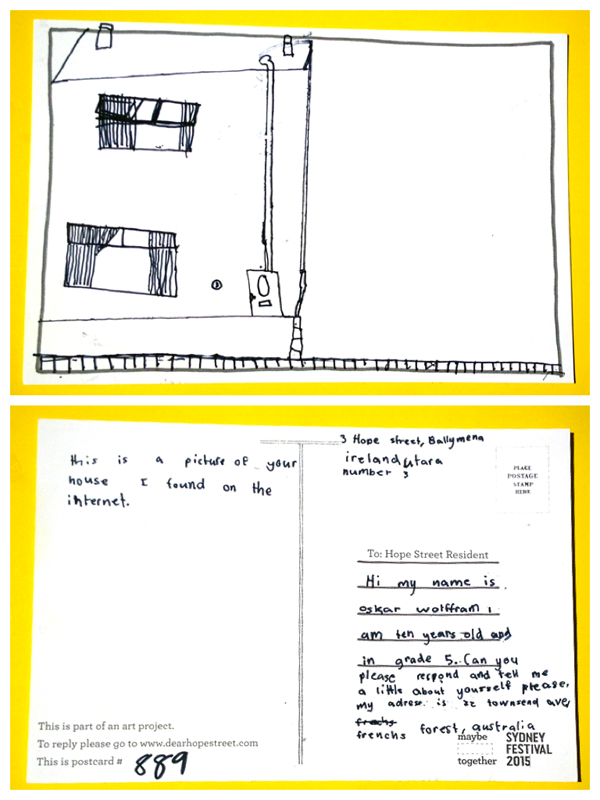 this is a picture of your
house I found on the
internet.
This is part of an art project.
To reply please go to www.dearhopestreet.com
This is postcard # 889
3 Hope street, Ballymena
ireland
number 3
PLACE
POSTAGE
STAMP
HERE
To: Hope Street Resident
Hi my name is
oskar wolffram i
am ten years old and
in grade 5. Can you
please respond and tell me
a little about yourself please,
my adress is 22 townsend ave,
frenchs forest, australia
maybe
together
SYDNEY
FESTIVAL
2015